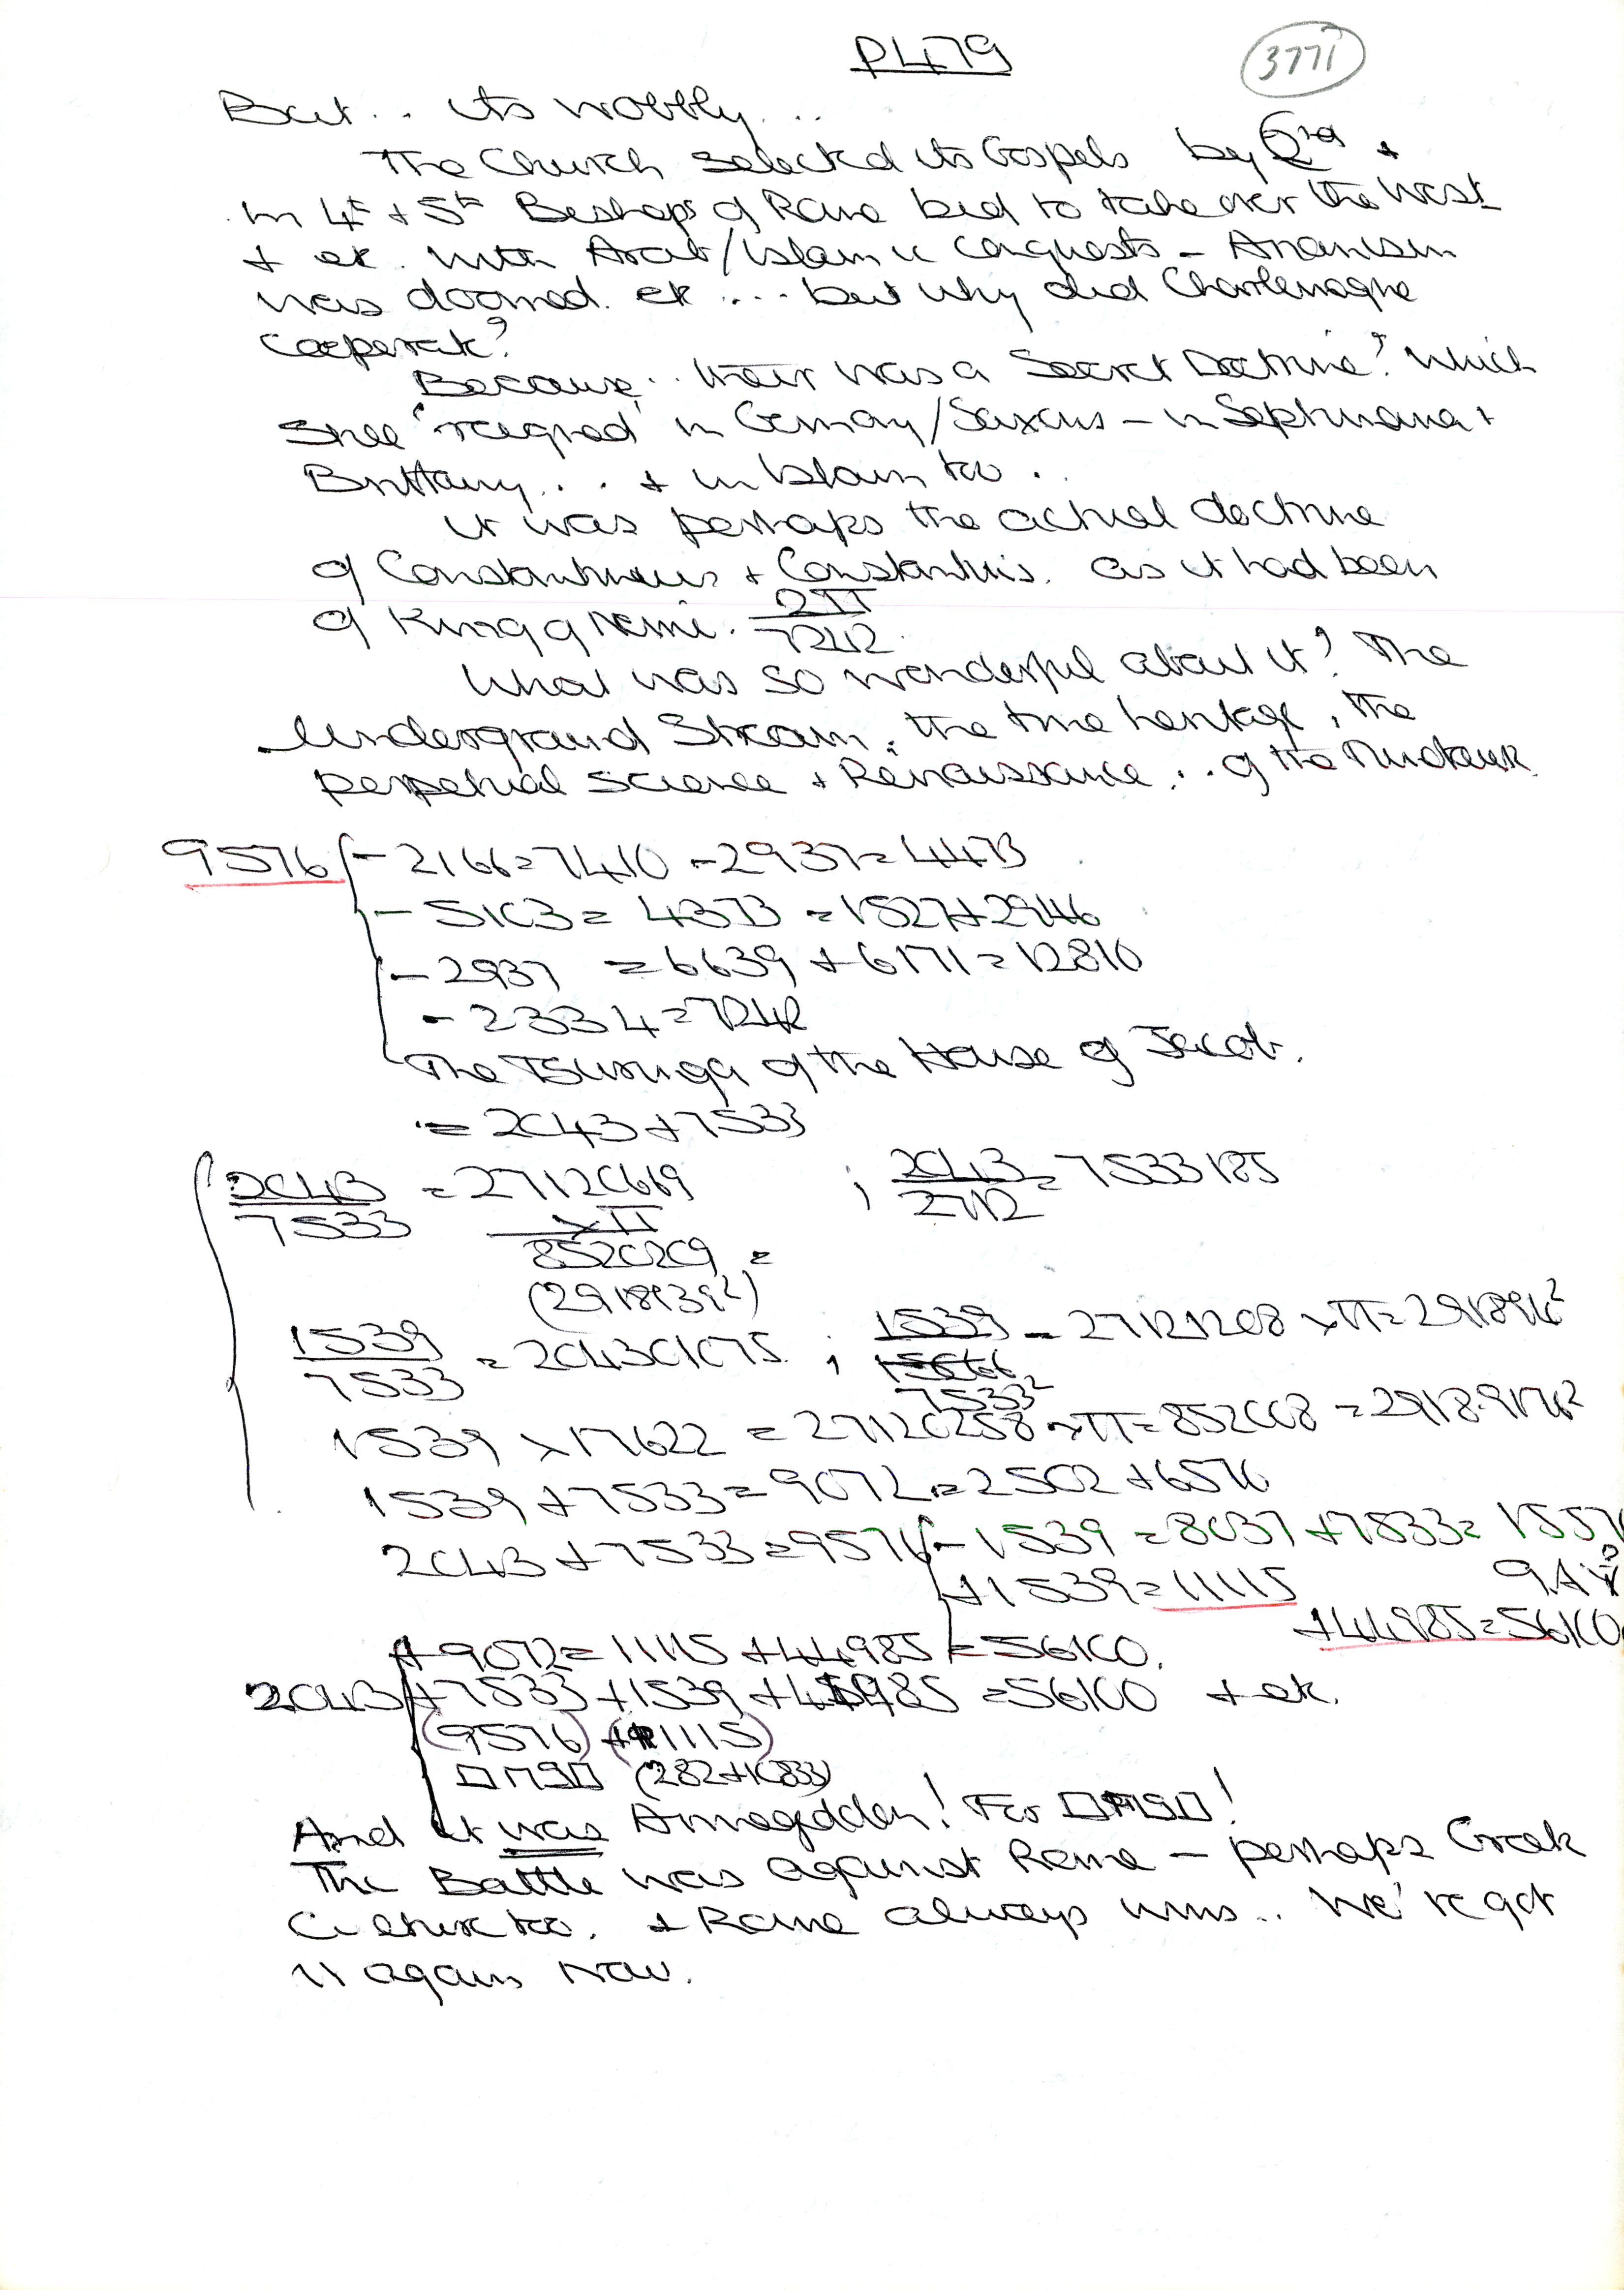 P479
3771
But.. its wobbly...
The Church selected its Gospels by 2nd +
in 4th + 5th Bishops of Rome bid to take over the West
+ etc. with Arab/Islamic conquests - Arianism
was doomed. etc .... but why did Charlemagne
cooperate?
Because.. their was a Secret Doctrine? which
still 'reigned' in Germany/Saxons - in Septimania +
Brittany... + in Islam too.
It was perhaps the actual doctrine
of Constantinus + Constantius. as it had been
of King of Nemi. 2π/7242
What was so wonderful about it? The
Underground Stream, the true heritage, the
perpetual science + Renaissance... of the
9576 - 2166 = 7410 - 2937 = 4473
- 5103 = 4373 = 1527 + 2946
- 2937 = 6639 + 6171 = 12810
- 2334 = 7242
The of the House of Jacob.
= 2043 + 7533
2043/7533 = 27120669 ; 2043/2712 = 7533185
xπ
8520209 =
(2918939²)
1539/7533 = 204301075 ; 1539/7533² = 27121208 xπ = 291891²
1539 x 17622 = 27120258 xπ = 852008 = 29189176²
1539 + 7533 = 9072 = 2502 + 6570
2043 + 7533 = 9576 - 1539 = 8037 + 7533 = 1557
+ 1539 = 11115
+ 44985 = 56100
+ 9072 = 11115 + 44985 = 56100.
2043 + 7533 + 1539 + 44985 = 56100 + etc.
(9576) (11115)
(282 + 10833)
And it was Armageddon! For !
The Battle was against Rome - perhaps Greek
Culture too. + Rome always wins.. We've got
it again now.